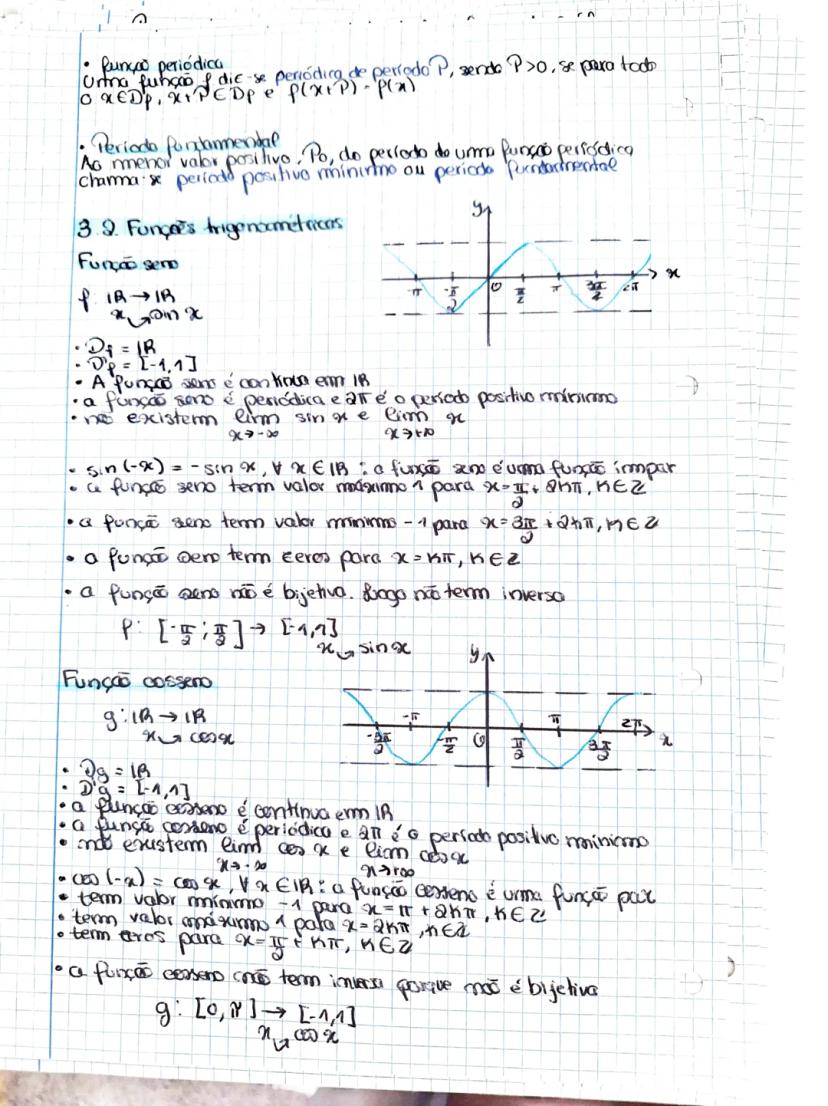 • função periódica
Uma função f diz-se periódica de período P, sendo P>0, se para todo
o x∈Df, x+P∈Df e f(x+P) = f(x)
• Período fundamental
Ao menor valor positivo, P0, do período de uma função periódica
chama-se período positivo mínimo ou período fundamental
3.2. Funções trigonométricas
Função seno
f: IR → IR
x ↪ sin x
y
x
-π -π/2 0 π/2 π 3π/2 2π
• Df = IR
• D'f = [-1,1]
• A função seno é contínua em IR
• a função seno é periódica e 2π é o período positivo mínimo
• não existem lim sin x e lim x
x→-∞ x→+∞
• sin(-x) = -sin x, ∀ x ∈ IR : a função seno é uma função ímpar
• a função seno tem valor máximo 1 para x = π/2 + 2kπ, k∈Z
• a função seno tem valor mínimo -1 para x = 3π/2 + 2kπ, k∈Z
• a função seno tem zeros para x = kπ, k∈Z
• a função seno não é bijetiva. Logo não tem inversa
f: [-π/2 ; π/2] → [-1,1]
x ↪ sin x
Função cosseno
g: IR → IR
x ↪ cos x
y
x
-3π/2 -π -π/2 0 π/2 π 3π/2 2π
• Dg = IR
• D'g = [-1,1]
• a função cosseno é contínua em IR
• a função cosseno é periódica e 2π é o período positivo mínimo
• não existem lim cos x e lim cos x
x→-∞ x→+∞
• cos(-x) = cos x, ∀ x ∈ IR : a função cosseno é uma função par
• tem valor mínimo -1 para x = π + 2kπ, k∈Z
• tem valor máximo 1 para x = 2kπ, k∈Z
• tem zeros para x = π/2 + kπ, k∈Z
• a função cosseno não tem inversa porque não é bijetiva
g: [0, π] → [-1,1]
x ↪ cos x